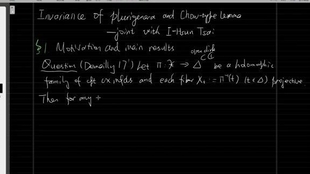 Invariance of plurigenera and Chow-type lemma
— joint with I-Hsun Tsai
§1 Motivation and main results
Question (Demailly, 17') Let π: 𝒳 → Δ ⊂ ℂ be a holomorphic
family of cpt cx mfds and each fiber X_t := π⁻¹(t) (t∈Δ) projective
Then for any